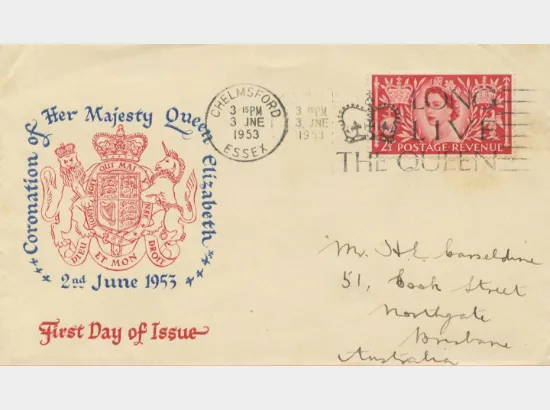 Coronation of Her Majesty Queen Elizabeth
DIEU ET MON DROIT
2nd June 1953
First Day of Issue
CHELMSFORD
3 15PM
3 JNE
1953
ESSEX
3 15PM
3 JNE
1953
LONG
LIVE
THE QUEEN
POSTAGE REVENUE
Mr. H.L. Casseldine
51, Cook Street
Northgate
Brisbane
Australia